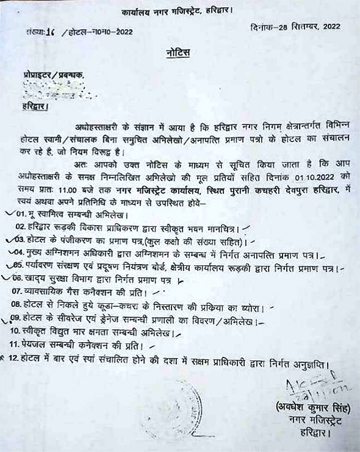 कार्यालय नगर मजिस्ट्रेट, हरिद्वार।
संख्या 16 /होटल-न0म0-2022
दिनांक-28 सितम्बर, 2022
नोटिस
प्रोपराइटर/प्रबन्धक,
हरिद्वार।
अधोहस्ताक्षरी के संज्ञान में आया है कि हरिद्वार नगर निगम क्षेत्रान्तर्गत विभिन्न
होटल स्वामी/संचालक बिना समुचित अभिलेखो/अनापत्ति प्रमाण पत्रो के होटल का संचालन
कर रहे है, जो नियम विरूद्ध है।
अतः आपको उक्त नोटिस के माध्यम से सूचित किया जाता है कि आप
अधोहस्ताक्षरी के समक्ष निम्नलिखित अभिलेखो की मूल प्रतियों सहित दिनांक 01.10.2022 को
समय प्रातः 11.00 बजे तक नगर मजिस्ट्रेट कार्यालय, स्थित पुरानी कचहरी देवपुरा हरिद्वार, में
स्वयं अथवा अपने प्रतिनिधि के माध्यम से उपस्थित होवे-
01. भू स्वामित्व सम्बन्धी अभिलेख।
02. हरिद्वार रूड़की विकास प्राधिकरण द्वारा स्वीकृत भवन मानचित्र।
03. होटल के पंजीकरण का प्रमाण पत्र,(कुल कक्षो की संख्या सहित)।
04. मुख्य अग्निशमन अधिकारी द्वारा अग्निशमन के सम्बन्ध में निर्गत अनापत्ति प्रमाण पत्र।
05. पर्यावरण संरक्षण एवं प्रदूषण नियंत्रण बोर्ड, क्षेत्रीय कार्यालय रूड़की द्वारा निर्गत प्रमाण पत्र।
06. खाद्य सुरक्षा विभाग द्वारा निर्गत प्रमाण पत्र
07. व्यावसायिक गैस कनैक्शन की प्रति।
08. होटल से निकले हुये कूड़ा-कचरा के निस्तारण की प्रकिया का ब्योरा।
09. होटल के सीवरेज एवं ड्रेनेज सम्बन्धी प्रणाली का विवरण/अभिलेख।
10. स्वीकृत विद्युत भार क्षमता सम्बन्धी अभिलेख।
11. पेयजल सम्बन्धी कनेक्शन की प्रति।
12. होटल में बार एवं स्पा संचालित होने की दशा में सक्षम प्राधिकारी द्वारा निर्गत अनुज्ञप्ति।
(अवधेश कुमार सिंह)
नगर मजिस्ट्रेट
हरिद्वार।